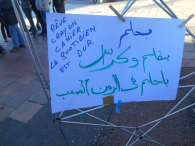 RÊVE
CRAYON
CAHIER
LE QUOTIDIEN
EST DUR
بحلم
بقلم وكراس
باحلم في الزمن الصعب